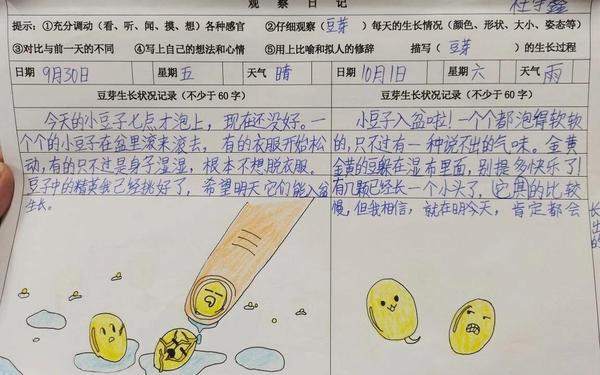 观 察 日 记
提示：①充分调动（看、听、闻、摸、想）各种感官 ②仔细观察（豆芽）每天的生长情况（颜色、形状、大小、姿态等）
③对比与前一天的不同 ④写上自己的想法和心情 ⑤用上比喻和拟人的修辞 描写（豆芽）的生长过程
日期 9月30日 星期 五 天气 晴 日期 10月1日 星期 六 天气 雨
豆芽生长状况记录（不少于 60 字）
今天的小豆子七点才泡上，现在还没好。一
个个的小豆子在盆里滚来滚去，有的衣服开始松
动，有的只不过是身子湿湿，根本不想脱衣服。
豆子中的精英我已经挑好了，希望明天它们能入盆
生长。
豆芽生长状况记录（不少于 60 字）
小豆子入盆啦！一个个都泡得软软
的，只不过有一种说不出的气味。金黄
金黄的豆躲在湿布里面，别提多快乐了！
有几颗已经长一个小头了，它俱的比较
慢，但我相信，就在明今天，肯定都会
长
出
的